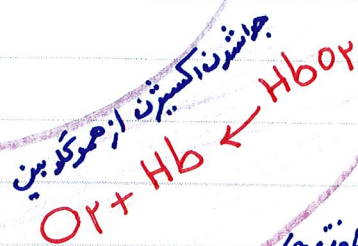 جداشدن اکسیژن از هموگلوبین
O۲ + Hb ← HbO۲